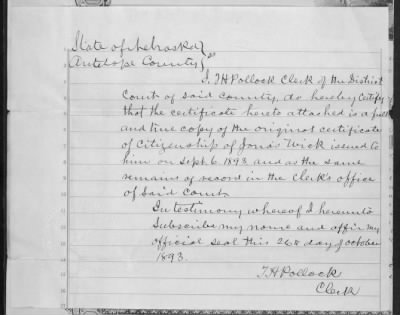 State of Nebraska }
Antelope County } S.
I. TH Pollock Clerk of the District
Court of said County, do hereby Certify
that the certificate hereto attached is a full
and true copy of the original certificate
of Citizenship of Jonas Wick issued to
him on Sept 6. 1893 and as the same
remains of record in the Clerk's office
of Said Court.
In testimony whereof I hereunto
Subscribe my name and affix my
official seal this 26th day of October
1893.
TH Pollock
Clerk